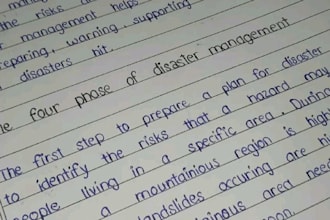 the risks
r management helps
reparing, warning, supporting
disasters hit.
four phase of disaster management
The first step to prepare a plan for disaster
to identify the risks that a hazard may
people living in a specific area. During
a mountainious region is high
landslides occuring are hi
ainous area need